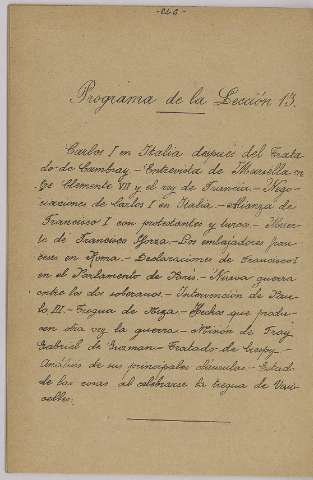 Programa de la Lección 13.
Carlos I en Italia después del Trata
do de Cambray – Entrevista de Marsella en
tre Clemente VII y el rey de Francia – Nego
ciaciones de Carlos I en Italia – Alianza de
Francisco I con protestantes y turcos – Muer
te de Francisco Sforza – Los embajadores fran
ceses en Roma – Declaraciones de Francisco I
en el Parlamento de París – Nueva guerra
entre los dos soberanos – Intervención de Pau
lo III – Tregua de Niza – Hechos que produ
cen otra vez la guerra – Misión de Fray
Gabriel de Guzman – Tratado de Crespy –
Análisis de sus principales cláusulas – Estado
de las cosas al celebrarse la tregua de Vau
celles.